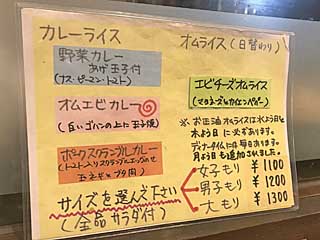 カレーライス
野菜カレー
あげ玉子付
(ナス・ピーマン・トマト)
オムエビカレー
(白いゴハンの上に玉子焼)
ポークスクランブルカレー
(トマト入りスクランブルエッグのせ
玉ネギとブタ肉)
サイズを選んで下さい
(全品サラダ付)
オムライス(日替わり)
エビチーズオムライス
(マヨネーズとカイエンペッパー)
※お正油オムライスは水よう日と
木よう日に必ずあります。
ディナータイムには毎日あります。
月よう日も追加されました。
女子もり ¥1100
男子もり ¥1200
大もり ¥1300